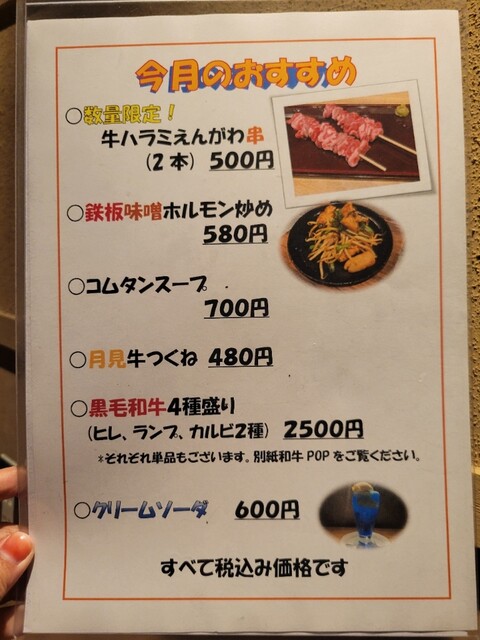 今月のおすすめ
○数量限定！
牛ハラミえんがわ串
(2本) 500円
○鉄板味噌ホルモン炒め
580円
○コムタンスープ
700円
○月見牛つくね 480円
○黒毛和牛4種盛り
(ヒレ、ランプ、カルビ2種) 2500円
*それぞれ単品もございます。別紙和牛POPをご覧ください。
○クリームソーダ 600円
すべて税込み価格です